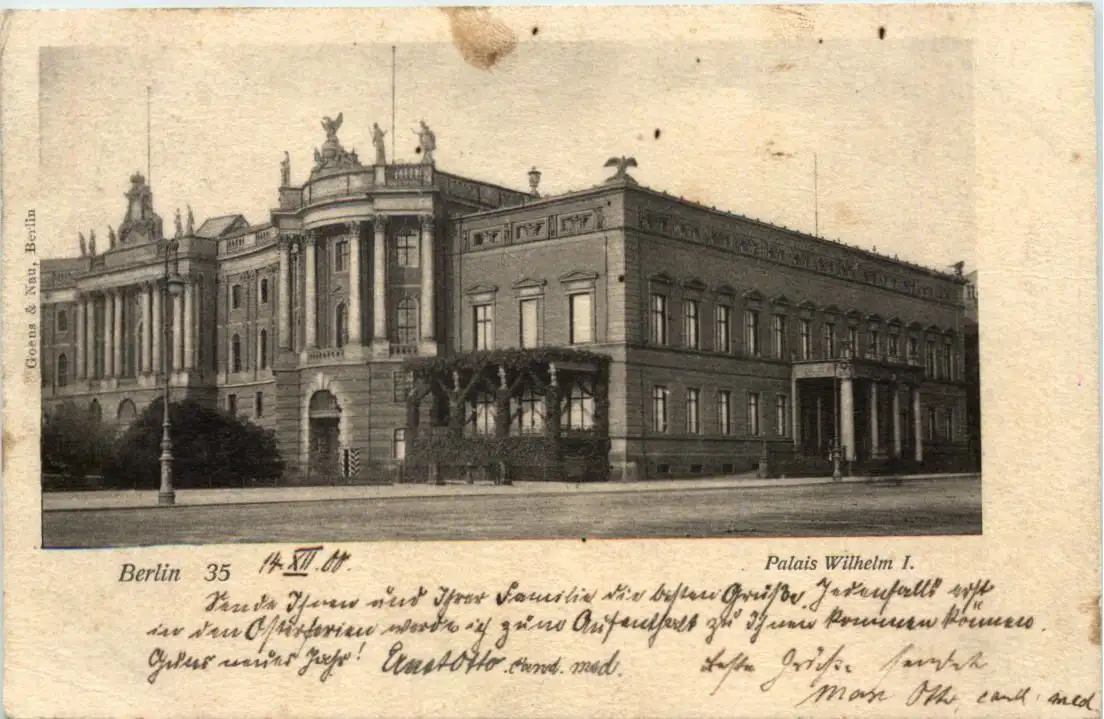 Goens & Nau, Berlin
Berlin 35
14. XII. 00.
Palais Wilhelm I.
Sende Ihnen und Ihrer Familie die besten Grüße. Jedenfalls erst
in den Osterferien werde ich zum Aufenthalt zu Ihnen kommen können.
neues Jahr! Ernst Otto. cand. med.
Beste Grüße sendet
Max Otto, cand. med.